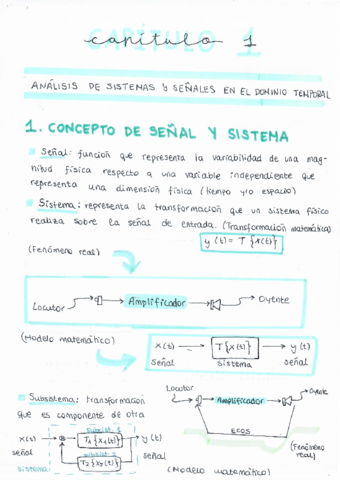 CAPÍTULO 1
capítulo 1
ANÁLISIS DE SISTEMAS Y SEÑALES EN EL DOMINIO TEMPORAL
1. CONCEPTO DE SEÑAL Y SISTEMA
Señal: función que representa la variabilidad de una mag-
nitud física respecto a una variable independiente que
representa una dimensión física (tiempo y/o espacio)
Sistema: representa la transformación que un sistema físico
realiza sobre la señal de entrada. (Transformación matemática)
y(t) = T{x(t)}
(Fenómeno real)
Locutor Amplificador Oyente
(Modelo matemático)
x(t) T{x(t)} y(t)
señal sistema señal
Subsistema: transformación
que es componente de otra
Locutor Amplificador Oyente
ECOS
(Fenómeno
real)
subsist. 1
x(t) T1{x1(t)} y(t)
señal subsist. 2 señal
sistema T2{x2(t)}
(Modelo matemático)